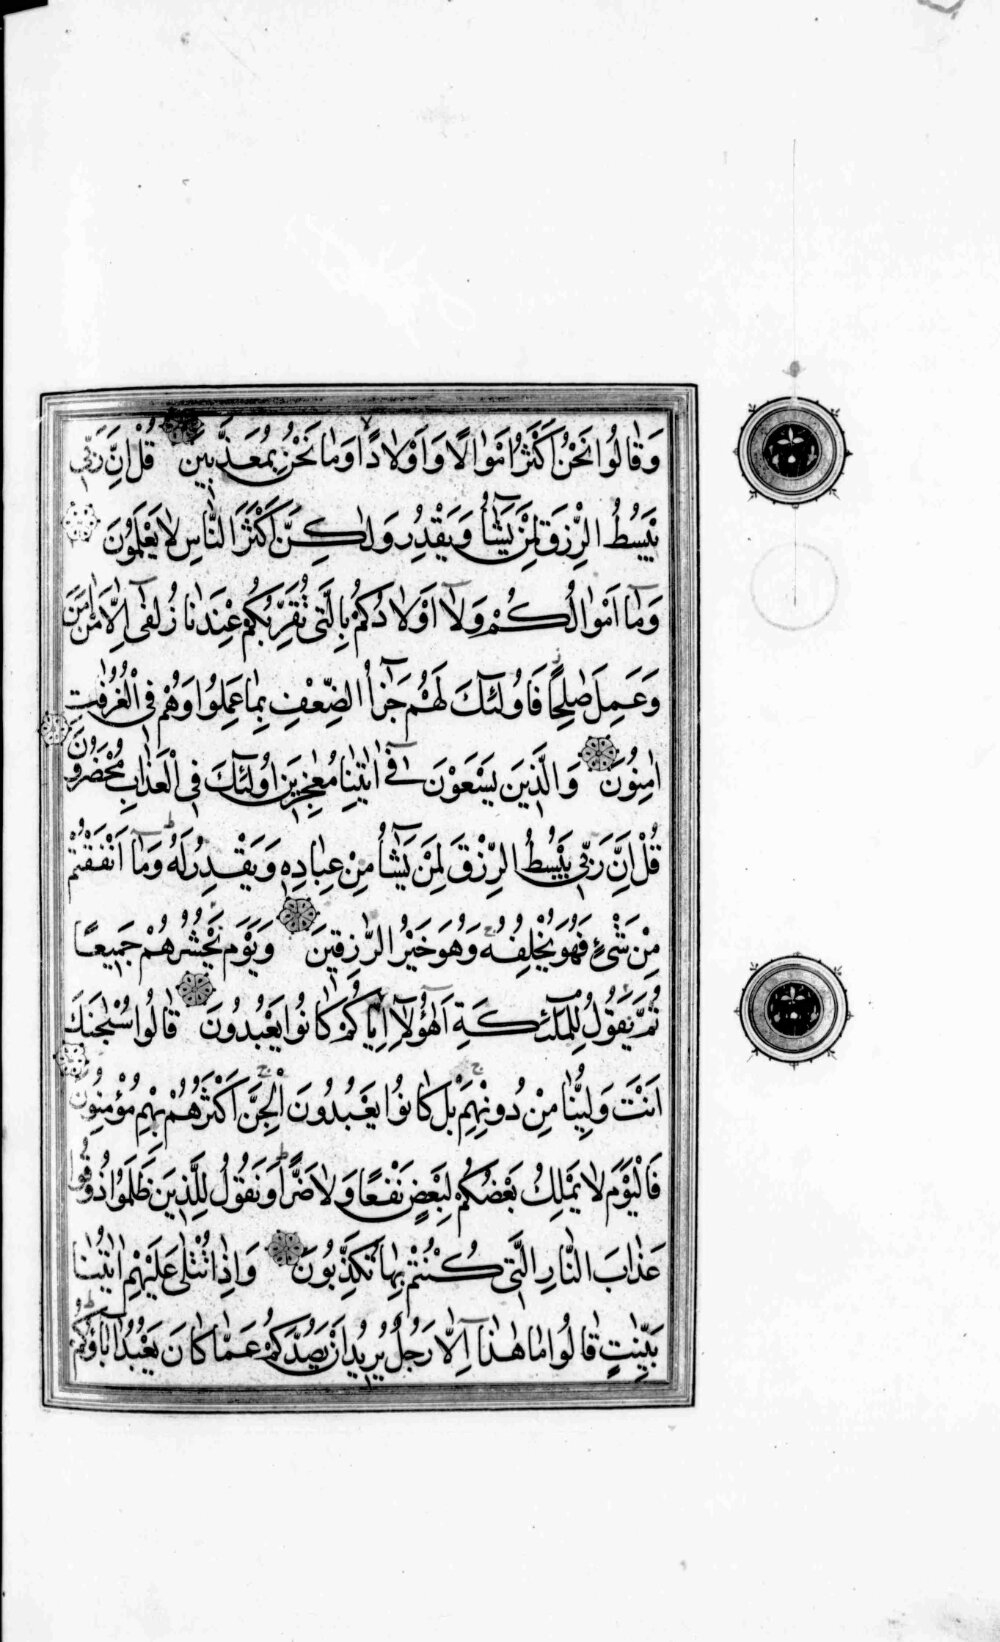 وَقَالُوا نَحْنُ اَكْثَرُ اَمْوَالًا وَاَوْلَادًا وَمَا نَحْنُ بِمُعَذَّبِينَ قُلْ اِنَّ رَبِّي
يَبْسُطُ الرِّزْقَ لِمَنْ يَشَٓاءُ وَيَقْدِرُ وَلٰكِنَّ اَكْثَرَ النَّاسِ لَا يَعْلَمُونَ
وَمَٓا اَمْوَالُكُمْ وَلَٓا اَوْلَادُكُمْ بِالَّتِي تُقَرِّبُكُمْ عِنْدَنَا زُلْفٰٓى اِلَّا مَنْ اٰمَنَ
وَعَمِلَ صَالِحًا فَاُولٰٓئِكَ لَهُمْ جَزَٓاءُ الضِّعْفِ بِمَا عَمِلُوا وَهُمْ فِي الْغُرُفَاتِ
اٰمِنُونَ وَالَّذِينَ يَسْعَوْنَ فِٓي اٰيَاتِنَا مُعَاجِزِينَ اُولٰٓئِكَ فِي الْعَذَابِ مُحْضَرُونَ
قُلْ اِنَّ رَبِّي يَبْسُطُ الرِّزْقَ لِمَنْ يَشَٓاءُ مِنْ عِبَادِهِ وَيَقْدِرُ لَهُ وَمَٓا اَنْفَقْتُمْ
مِنْ شَيْءٍ فَهُوَ يُخْلِفُهُ وَهُوَ خَيْرُ الرَّازِقِينَ وَيَوْمَ نَحْشُرُهُمْ جَمِيعًا
ثُمَّ نَقُولُ لِلْمَلٰٓئِكَةِ اَهٰٓؤُلَٓاءِ اِيَّاكُمْ كَانُوا يَعْبُدُونَ قَالُوا سُبْحٰنَكَ
اَنْتَ وَلِيُّنَا مِنْ دُونِهِمْ بَلْ كَانُوا يَعْبُدُونَ الْجِنَّ اَكْثَرُهُمْ بِهِمْ مُؤْمِنُونَ
فَالْيَوْمَ لَا يَمْلِكُ بَعْضُكُمْ لِبَعْضٍ نَفْعًا وَلَا ضَرًّا وَنَقُولُ لِلَّذِينَ ظَلَمُوا ذُوقُوا
عَذَابَ النَّارِ الَّتِي كُنْتُمْ بِهَا تُكَذِّبُونَ وَاِذَا تُتْلٰى عَلَيْهِمْ اٰيَاتُنَا
بَيِّنَاتٍ قَالُوا مَا هٰذَٓا اِلَّا رَجُلٌ يُرِيدُ اَنْ يَصُدَّكُمْ عَمَّا كَانَ يَعْبُدُ اٰبَٓاؤُكُمْ